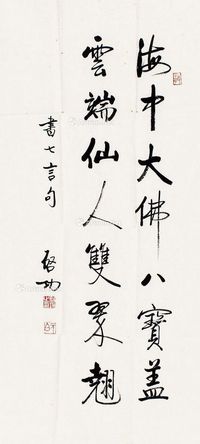 海中大佛八寶蓋
雲端仙人雙翠翹
書七言句
啓功